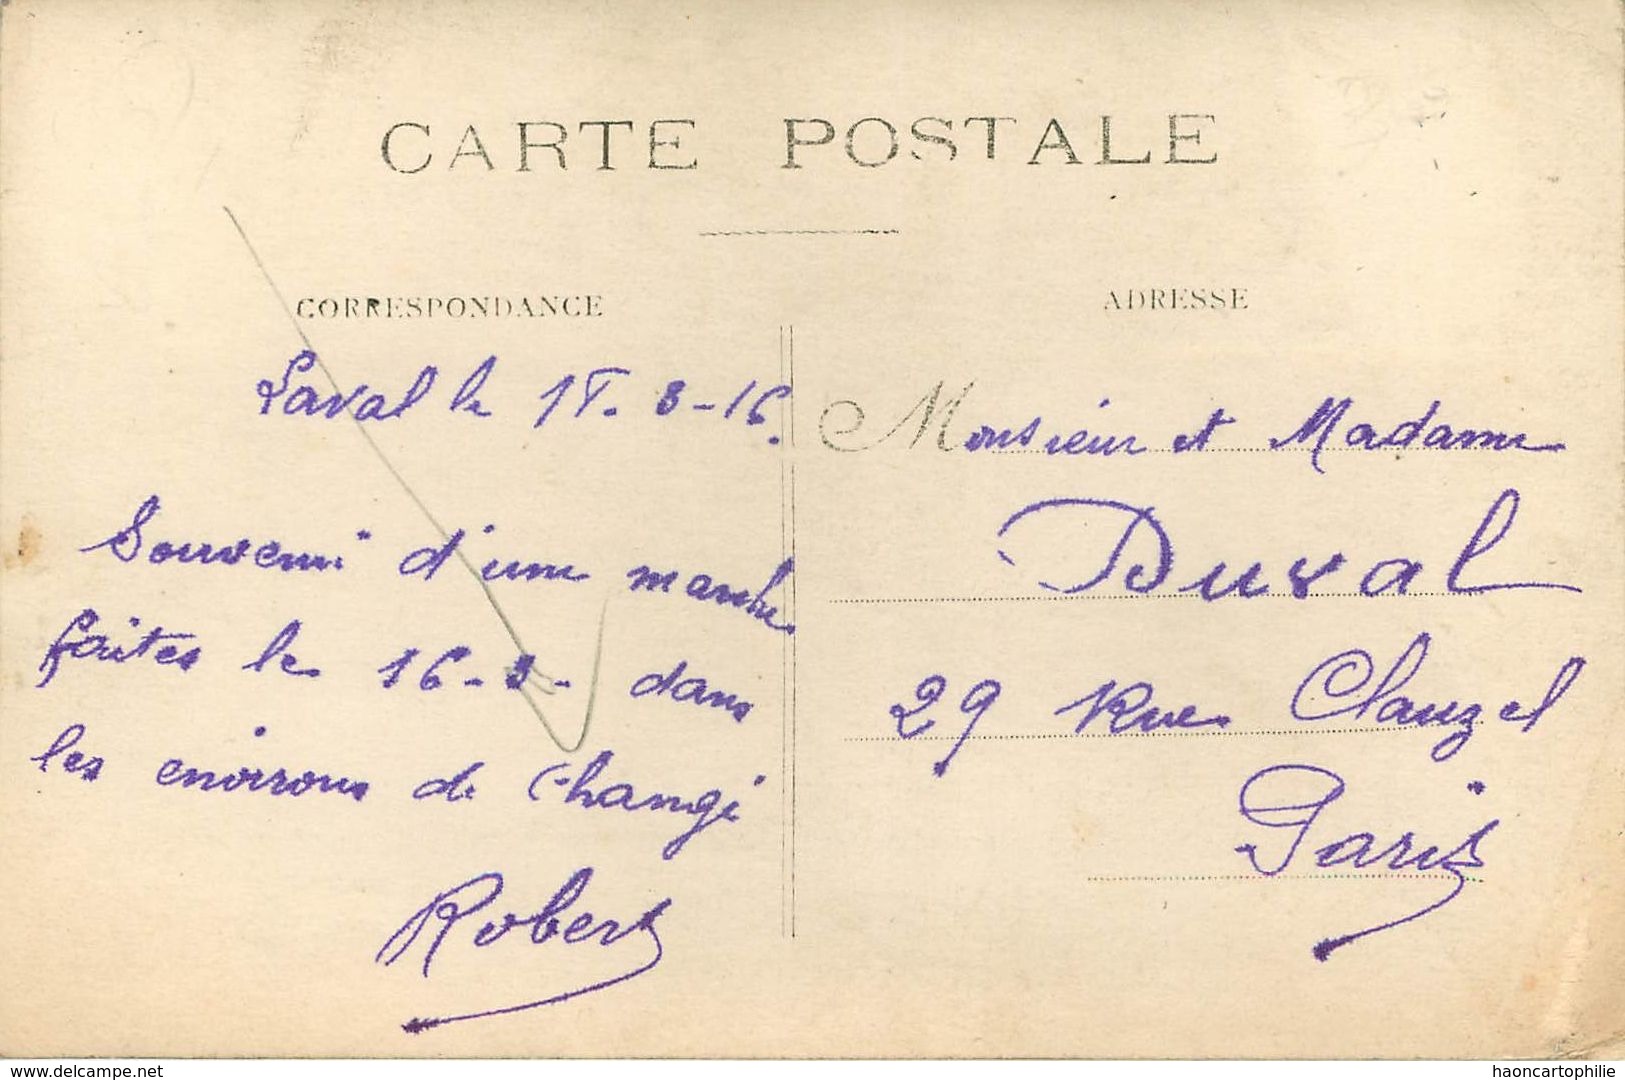 CARTE POSTALE
CORRESPONDANCE
Laval le 17-3-16.
Souvenir d'une marche
faites le 16-3- dans
les environs de Changé
Robert
ADRESSE
Monsieur et Madame
Duval
29 Rue Clauzel
Paris
delcampe.net
haoncartophilie